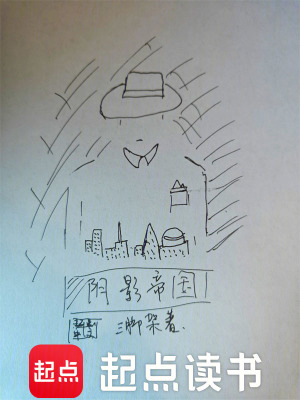 阴影帝国
三脚架著
起点 起点读书